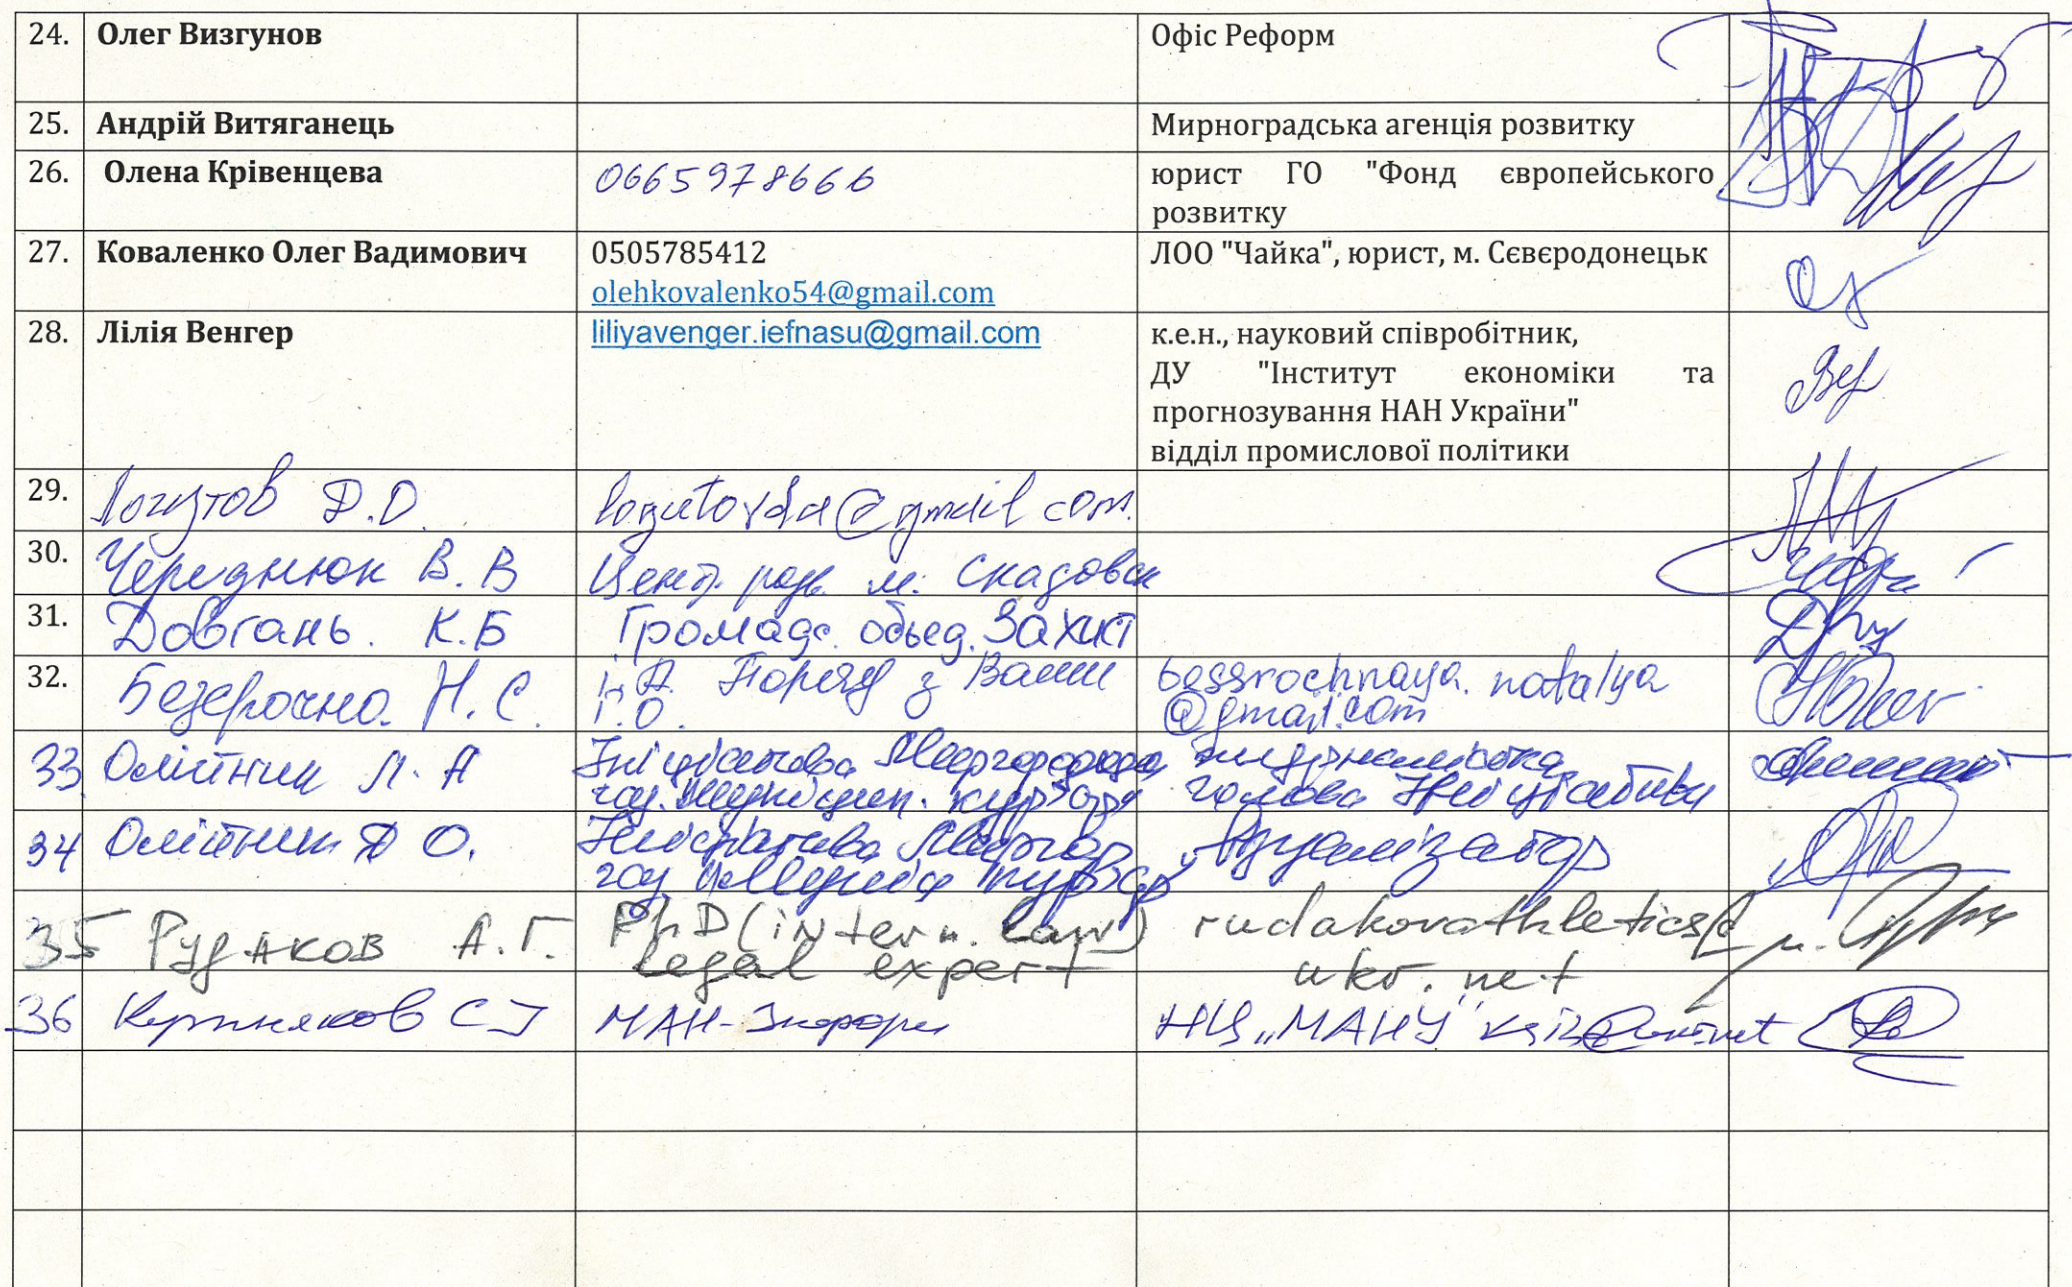 24. Олег Визгунов Офіс Реформ
25. Андрій Витяганець Мирноградська агенція розвитку
26. Олена Крівенцева 0665978666 юрист ГО "Фонд європейського
розвитку
27. Коваленко Олег Вадимович 0505785412 ЛОО "Чайка", юрист, м. Сєвєродонецьк
olehkovalenko54@gmail.com
28. Лілія Венгер liliyavenger.iefnasu@gmail.com к.е.н., науковий співробітник,
ДУ "Інститут економіки та
прогнозування НАН України"
відділ промислової політики
29. Логутов Д.О. logutovda@gmail com.
30. Череднюк В.В Центр. розв. м. Скадовск
31. Довгань. К.Б Громадс. обьед. Захист
32. Н.С. Поряд з Вами bessrochnaya.natalya
Г.О. @gmail.com
33 Олійник Л.А журналістка
голова Ініціативи
34 Олійник Д О.
35 Рудаков А.Г. PhD (intern. law) rudakovathletics@
legal expert ukr.net
36 МАН-Інформ НЦ „МАНУ"